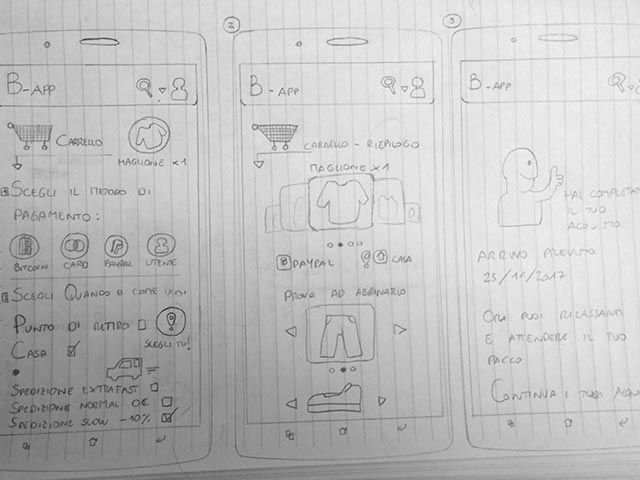 B-APP
CARRELLO
MAGLIONE X1
SCEGLI IL METODO DI
PAGAMENTO:
BITCOIN
CARD
PAYPAL
UTENTE
SCEGLI QUANDO E COME
PUNTO DI RITIRO
SCEGLI TU!
CASA
SPEDIZIONE EXTRAFAST
SPEDIZIONE NORMAL 0€
SPEDIZIONE SLOW -10%
2
B-APP
CARRELLO - RIEPILOGO
MAGLIONE X1
PAYPAL
CASA
PROVA AD ABBINARLO
3
B-APP
HAI COMPLETA
IL TUO
ACQUISTO
ARRIVO PREVISTO
23/11/2017
ORA PUOI RILASSARTI
E ATTENDERE IL TUO
PACCO
CONTINUA I TUOI ACQUI